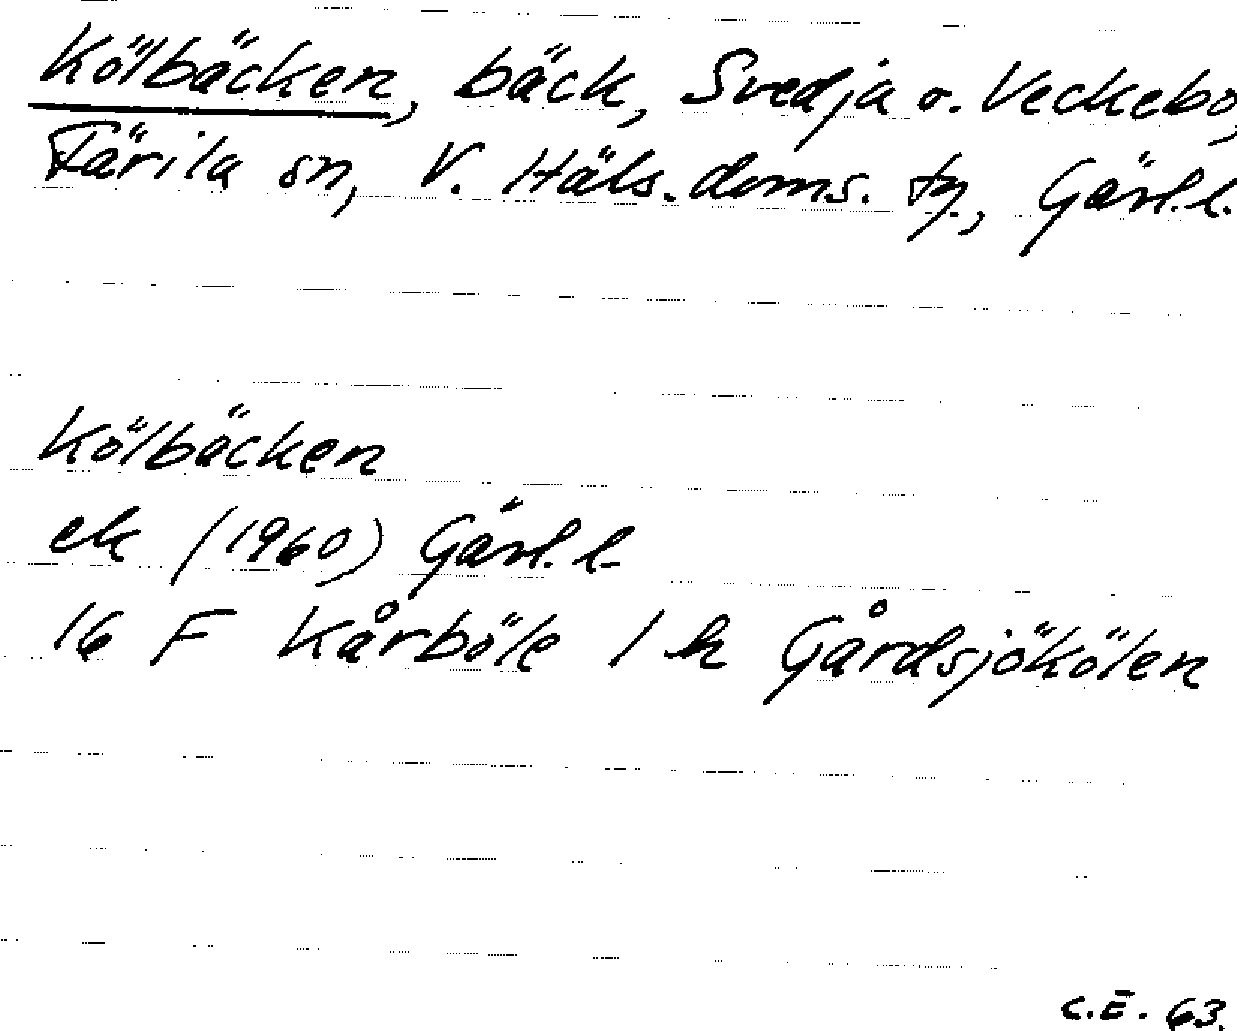 Kölbäcken, bäck, Svedja o. Veckebo,
Färila sn, V. Häls. doms. tg., Gävl.l.
Kölbäcken
ek (1960) Gävl. l.
16 F Kårböle 1 h Gårdsjökölen
C.E. 63.